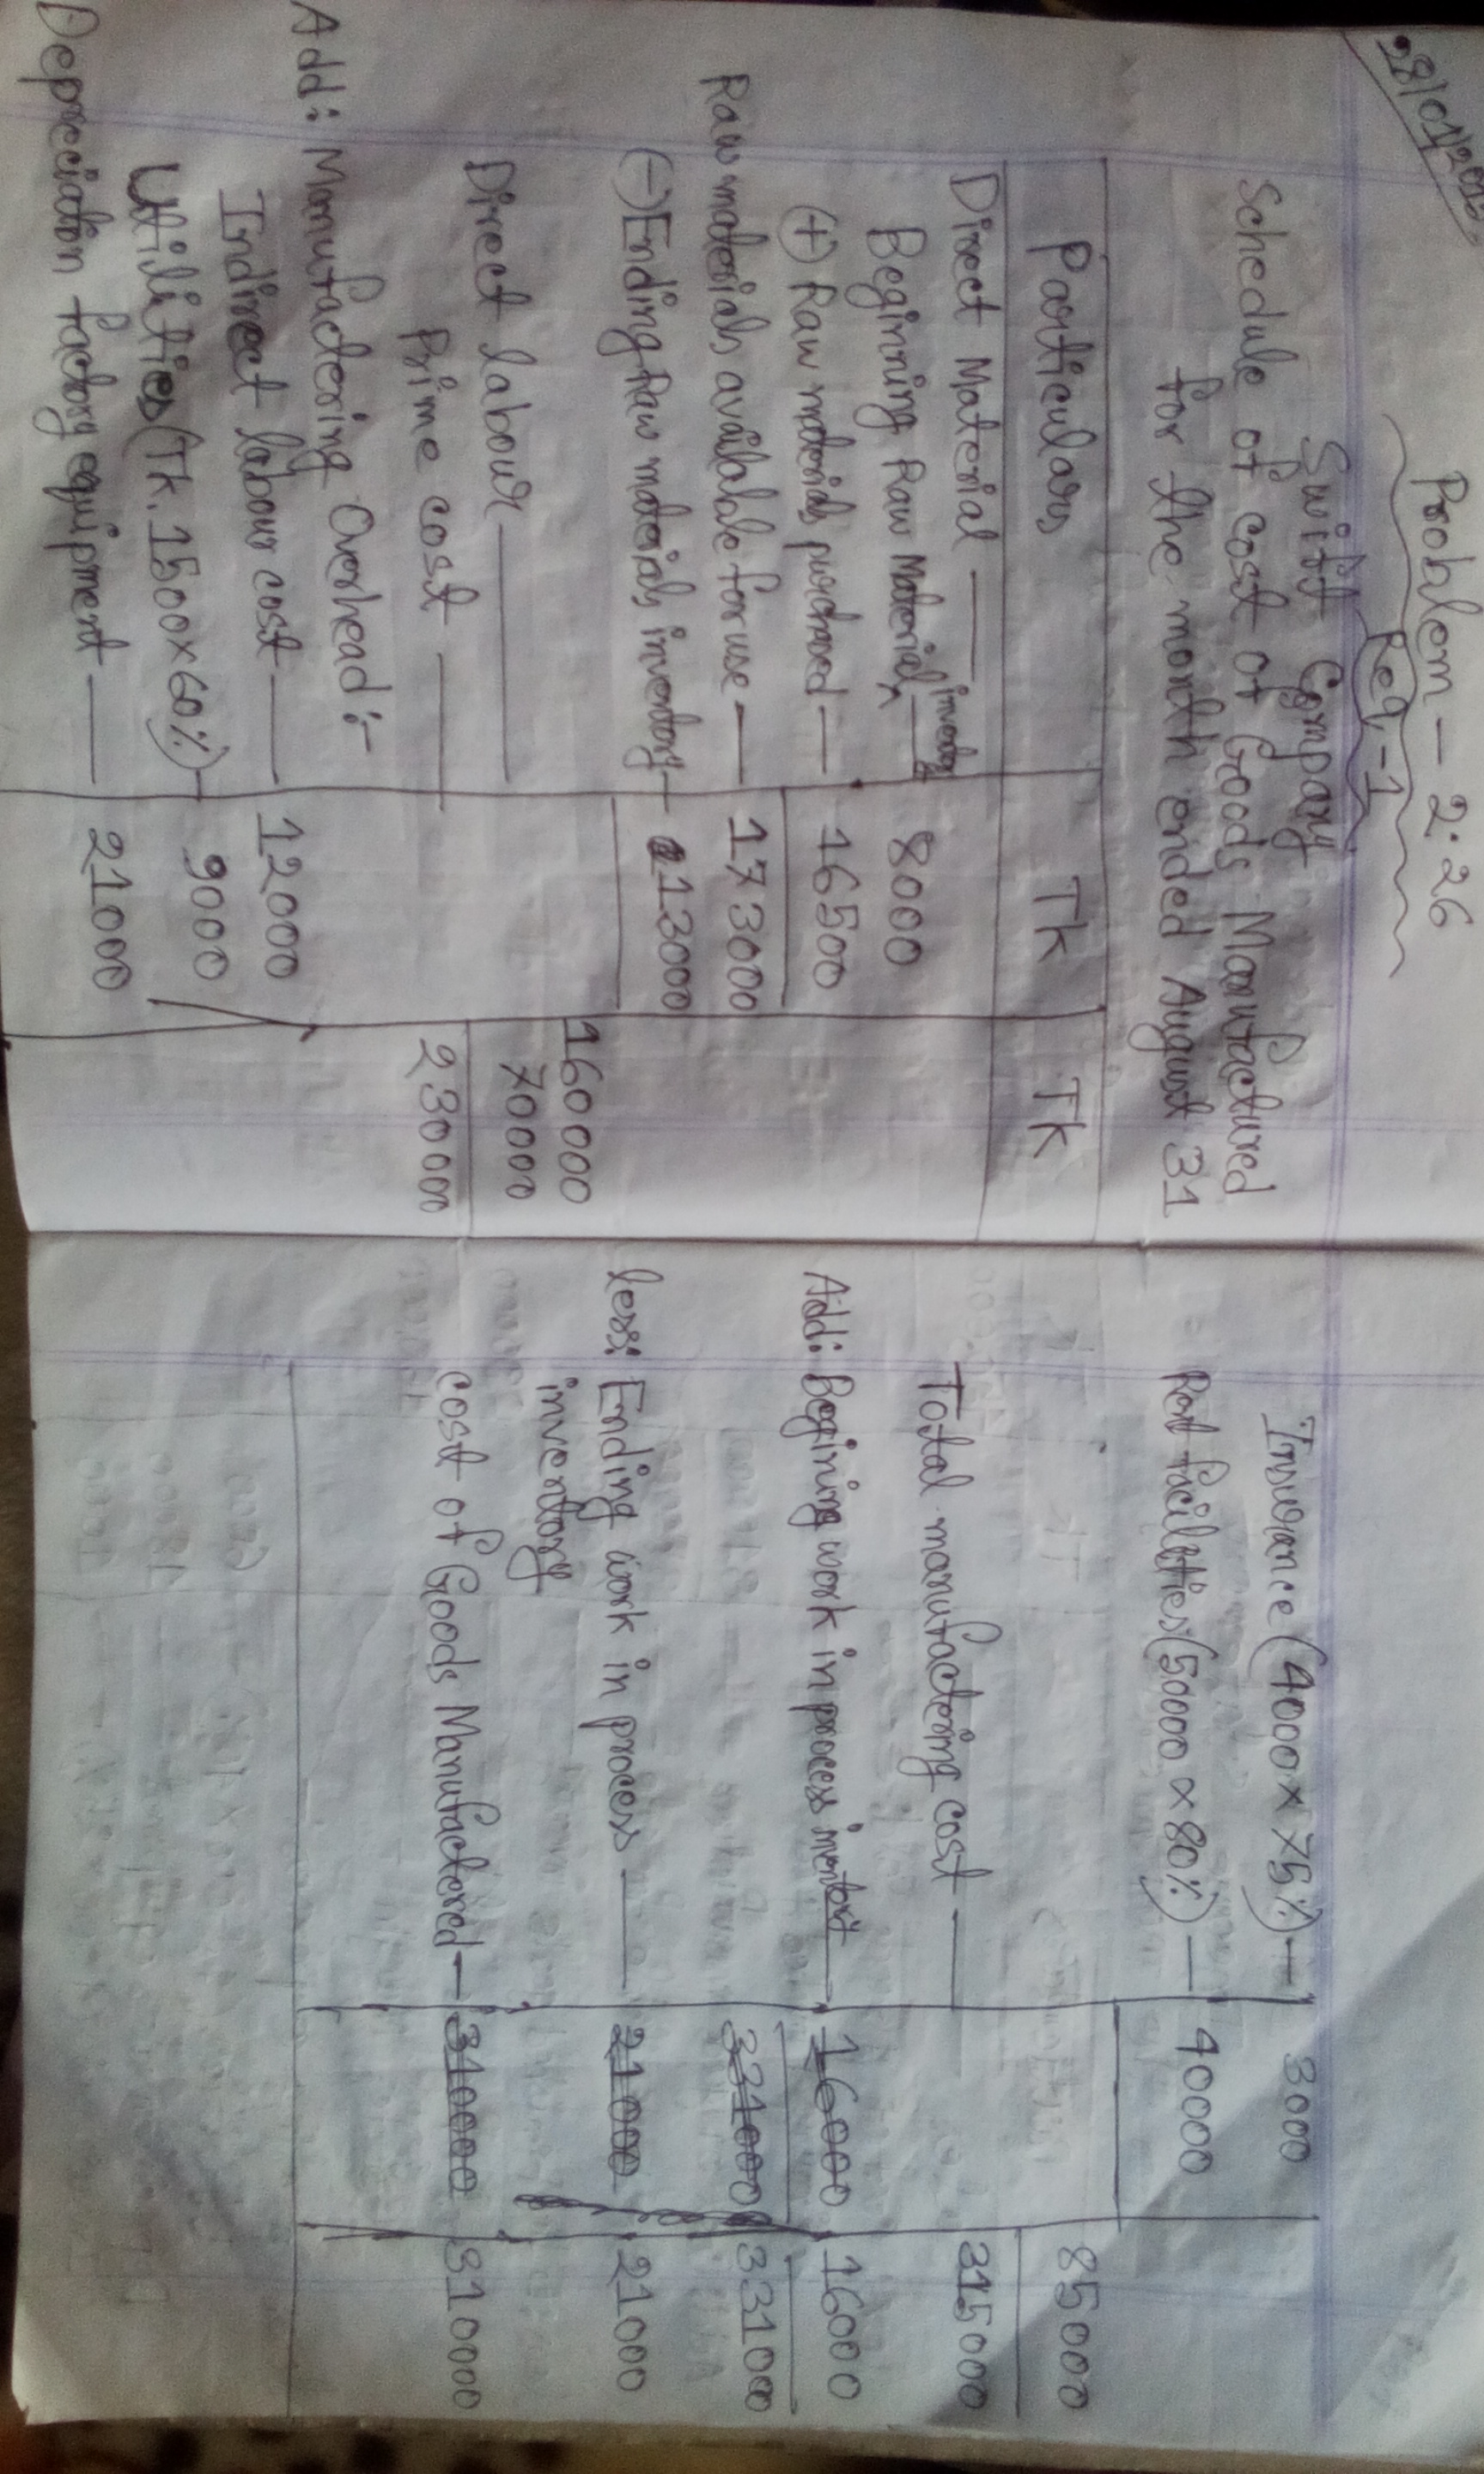 28/01/20
Problem - 2.26
Req,-1
Swift Company
Schedule of cost of Goods Manufactured
for the month ended August 31
Particulars Tk Tk
Direct Material
Beginning Raw Material inventory 8000
(+) Raw materials purchased 16500
Raw materials available for use 173000
(-) Ending Raw materials inventory 13000
160000
Direct labour 70000
Prime cost 230000
Add: Manufactering Overhead:-
Indirect labour cost 12000
Utilities (Tk. 1500×60%) 9000
Depreciation factory equipment 21000
Insurance (4000×75%) 3000
Rent facilities (50000×80%) 40000
85000
Total manufactering cost 315000
Add: Begining work in process inventory 16000 16000
331000 331000
less: Ending work in process 21000 21000
inventory
cost of Goods Manufactered 310000 310000